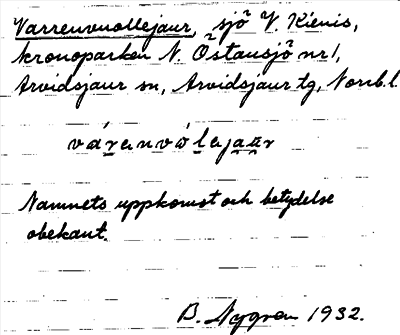 Varrenvuollejaur, sjö V. Kienis,
kronoparken N. Östansjö nr 1,
Arvidsjaur sn, Arvidsjaur tg, Norrb. l.
várenvòlejaur
Namnets uppkomst och betydelse
obekant.
B. Nygren 1932.